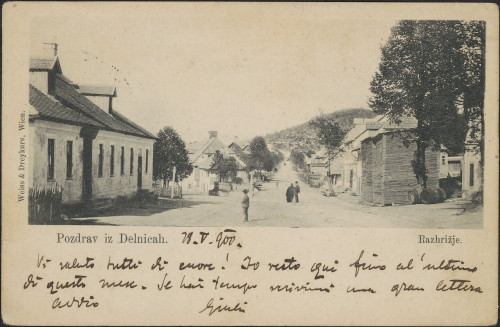 Weiss & Dreykurs, Wien.
Pozdrav iz Delnicah. 29. V. 900. Razhrižje.
Vi saluto tutti di cuore! Io resto qui fino al' ultimo
di questo mese. Se hai tempo scrivimi una gran lettera
addio Giuli